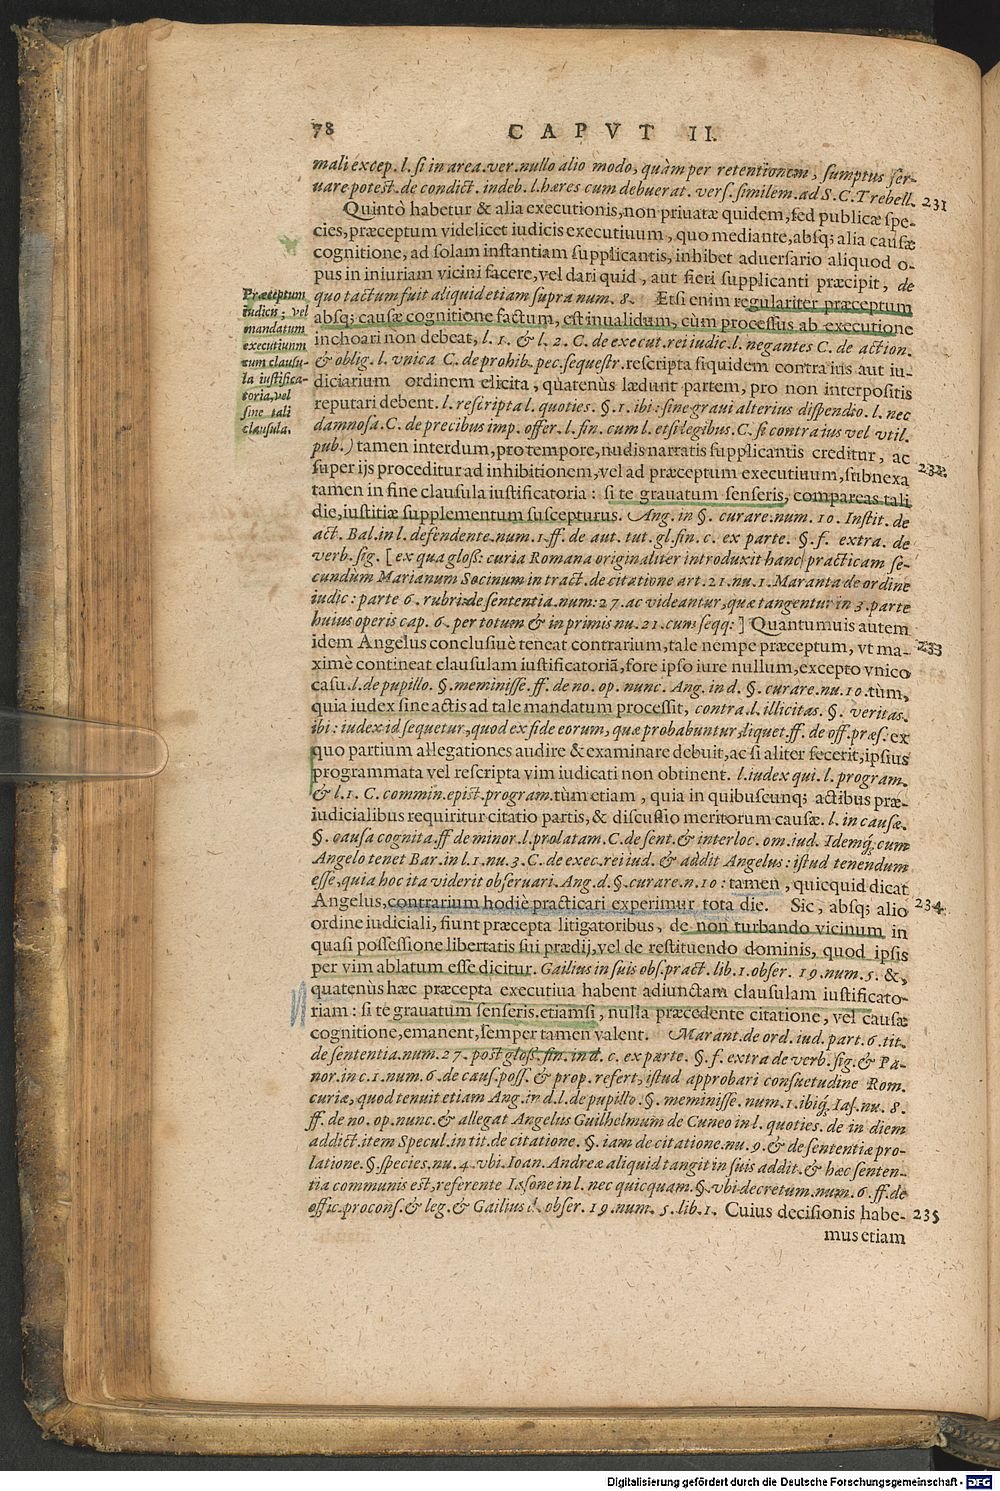 78
CAPVT II.
mali excep. l. si in area. ver. nullo alio modo, quàm per retentionem, sumptus ser-
uare potest. de condict. indeb. l. hæres cum debuerat. vers. similem. ad S. C. Trebell.
231
Quintò habetur & alia executionis, non priuatæ quidem, sed publicæ spe-
cies, præceptum videlicet iudicis executiuum, quo mediante, absq; alia causæ
cognitione, ad solam instantiam supplicantis, inhibet aduersario aliquod o-
pus in iniuriam vicini facere, vel dari quid, aut fieri supplicanti præcipit, de
quo tactum fuit aliquid etiam supra num. 8. Etsi enim regulariter præceptum
absq; causæ cognitione factum, est inualidum, cùm processus ab executione
inchoari non debeat, l. 1. & l. 2. C. de execut. rei iudic. l. negantes C. de action.
& oblig. l. vnica C. de prohib. pec. sequestr. rescripta siquidem contra ius aut iu-
diciarium ordinem elicita, quatenùs lædunt partem, pro non interpositis
reputari debent. l. rescripta l. quoties. §. 1. ibi: sine graui alterius dispendio. l. nec
damnosa. C. de precibus imp. offer. l. fin. cum l. etsi legibus. C. si contra ius vel vtil.
pub.) tamen interdum, pro tempore, nudis narratis supplicantis creditur, ac
super ijs proceditur ad inhibitionem, vel ad præceptum executiuum, subnexa
232
tamen in fine clausula iustificatoria: si te grauatum senseris, compareas tali
die, iustitiæ supplementum suscepturus. Ang. in §. curare. num. 10. Instit. de
act. Bal. in l. defendente. num. 1. ff. de aut. tut. gl. fin. c. ex parte. §. f. extra. de
verb. sig. [ex qua gloss: curia Romana originaliter introduxit hanc practicam se-
cundùm Marianum Socinum in tract. de citatione art. 21. nu. 1. Maranta de ordine
iudic: parte 6. rubri: de sententia. num: 27. ac videantur, quæ tangentur in 3. parte
huius operis cap. 6. per totum & in primis nu. 21. cum seqq:] Quantumuis autem
idem Angelus conclusiuè teneat contrarium, tale nempe præceptum, vt ma-
233
ximè contineat clausulam iustificatoriã, fore ipso iure nullum, excepto vnico
casu. l. de pupillo. §. meminisse. ff. de no. op. nunc. Ang. in d. §. curare. nu. 10. tùm,
quia iudex sine actis ad tale mandatum processit, contra. l. illicitas. §. veritas.
ibi: iudex id sequetur, quod ex fide eorum, quæ probabuntur, liquet. ff. de off. præs. ex
quo partium allegationes audire & examinare debuit, ac si aliter fecerit, ipsius
programmata vel rescripta vim iudicati non obtinent. l. iudex qui. l. program.
& l. 1. C. commin. epist. program. tùm etiam, quia in quibuscunq; actibus præ-
iudicialibus requiritur citatio partis, & discussio meritorum causæ. l. in causæ.
§. causa cognita. ff de minor. l. prolatam. C. de sent. & interloc. om. iud. Idemq́; cum
Angelo tenet Bar. in l. 1. nu. 3. C. de exec. rei iud. & addit Angelus: istud tenendum
esse, quia hoc ita viderit obseruari. Ang. d. §. curare. n. 10: tamen, quicquid dicat
Angelus, contrarium hodiè practicari experimur tota die. Sic, absq; alio
234
ordine iudiciali, fiunt præcepta litigatoribus, de non turbando vicinum in
quasi possessione libertatis sui prædij, vel de restituendo dominis, quod ipsis
per vim ablatum esse dicitur. Gailius in suis obs. pract. lib. 1. obser. 19. num. 5. &,
quatenùs hæc præcepta executiua habent adiunctam clausulam iustificato-
riam: si te grauatum senseris. etiamsi, nulla præcedente citatione, vel causæ
cognitione, emanent, semper tamen valent. Marant. de ord. iud. part. 6. tit.
de sententia. num. 27. post gloss. fin. in d. c. ex parte. §. f. extra de verb. sig. & Pa-
nor. in c. 1. num. 6. de caus. poss. & prop. refert, istud approbari consuetudine Rom.
curiæ, quod tenuit etiam Ang. in d. l. de pupillo. §. meminisse. num. 1. ibiq́; Ias. nu. 8.
ff. de no. op. nunc. & allegat Angelus Guilhelmum de Cuneo in l. quoties. de in diem
addict. item Specul. in tit. de citatione. §. iam de citatione. nu. 9. & de sententiæ pro-
latione. §. species. nu. 4. vbi. Ioan. Andreæ aliquid tangit in suis addit. & hæc senten-
tia communis est, referente Iasone in l. nec quicquam. §. vbi decretum. num. 6. ff. de
offic. procons. & leg. & Gailius d. obser. 19. num. 5. lib. 1. Cuius decisionis habe-
235
mus etiam
Præceptum
iudicis; vel
mandatum
executiuum
cum clausu-
la iustifica-
toria, vel
sine tali
clausula.
Digitalisierung gefördert durch die Deutsche Forschungsgemeinschaft - DFG